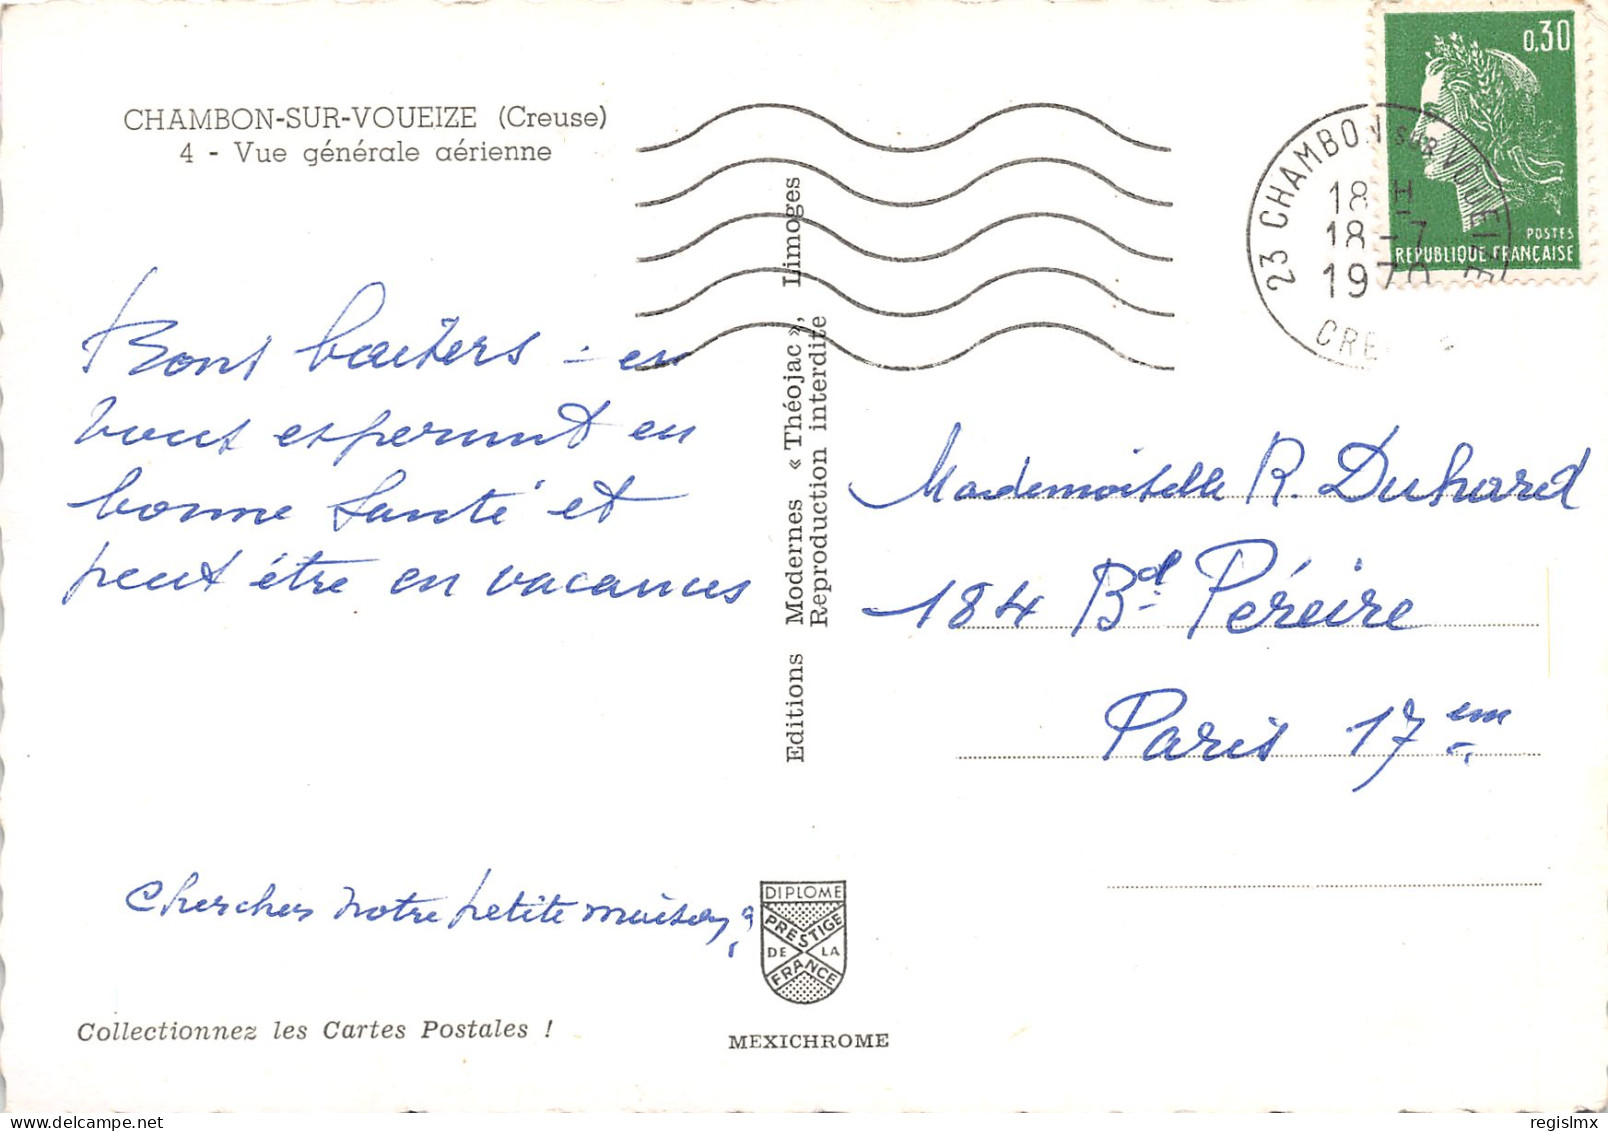 CHAMBON-SUR-VOUEIZE (Creuse)
4 - Vue générale aérienne
Bons baisers - en
vous esperant en
bonne santé et
peut être en vacances
Cherchez notre petite maison ?
Collectionnez les Cartes Postales !
Editions Modernes « Théojac », Limoges
Reproduction interdite
DIPLOME
PRESTIGE
DE LA
FRANCE
MEXICHROME
0,30
POSTES
REPUBLIQUE FRANÇAISE
23 CHAMBON SUR VOUEIZE
18 H
18 - 7
1970
Mademoiselle R. Duhard
184 Bd Péreire
Paris 17em
delcampe.net
regislmx